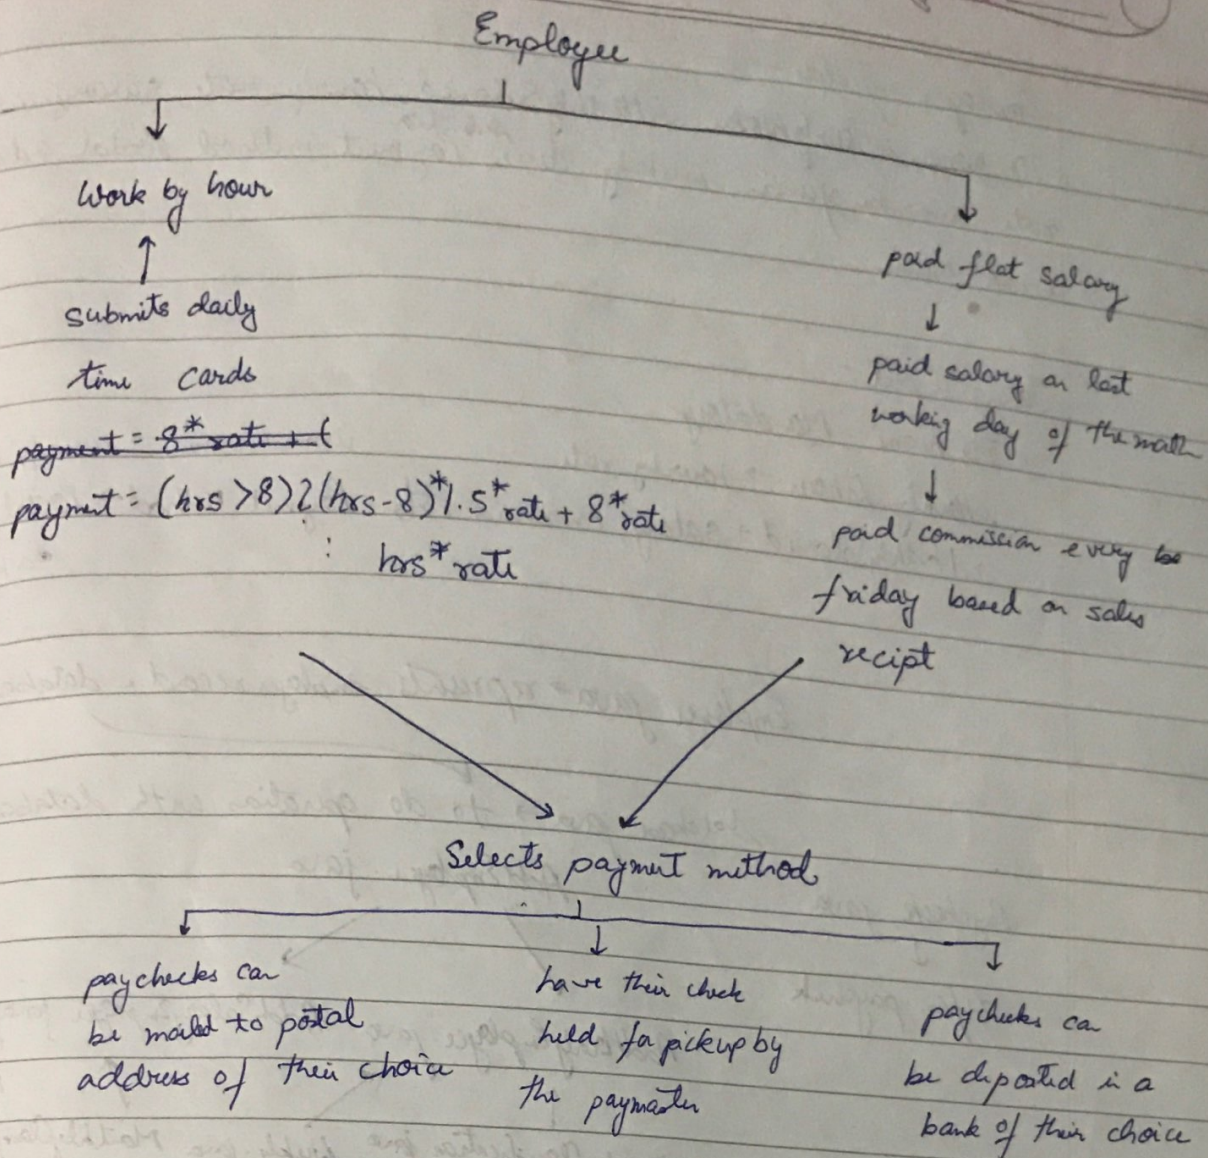 Employee
Work by hour
submits daily
time cards
payment = 8* rate + (
payment = (hrs >8)?(hrs-8)*1.5*rate + 8*rate
: hrs*rate
paid flat salary
paid salary on last
working day of the month
paid commission every
friday based on sales
recipt
Selects payment method
paychecks can
be mailed to postal
address of their choice
have their check
held for pickup by
the paymaster
paychecks can
be deposited in a
bank of their choice